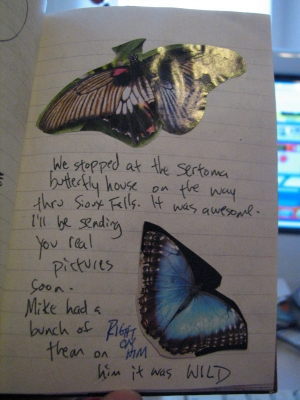 We stopped at the Sertoma
butterfly house on the way
thru Sioux Falls. It was awesome.
I'll be sending
you real
pictures
soon.
Mike had a
bunch of RIGHT
ON
them on HIM
him it was WILD